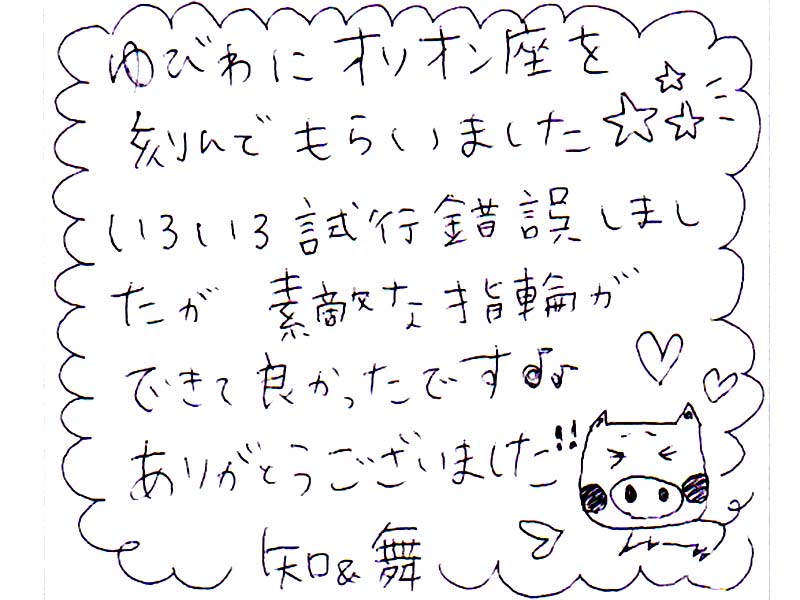 ゆびわにオリオン座を
刻んでもらいました☆☆☆
いろいろ試行錯誤しまし
たが 素敵な指輪が
できて良かったです♪♪
ありがとうございました!!
知&舞